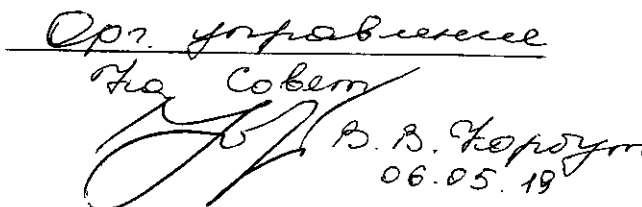 Орг. управление
На Совет
В. В. Корбут
06.05.19